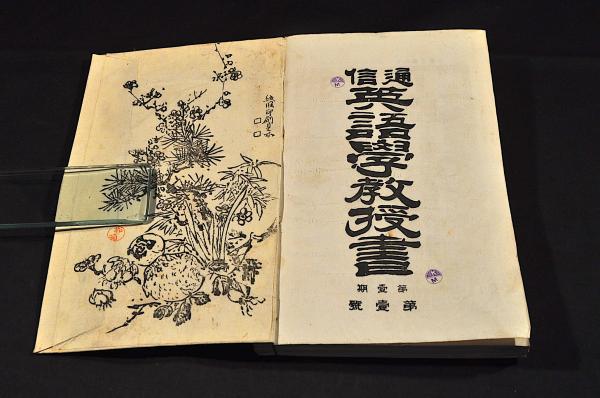 通信
英語學教授書
第壹期
第壹號